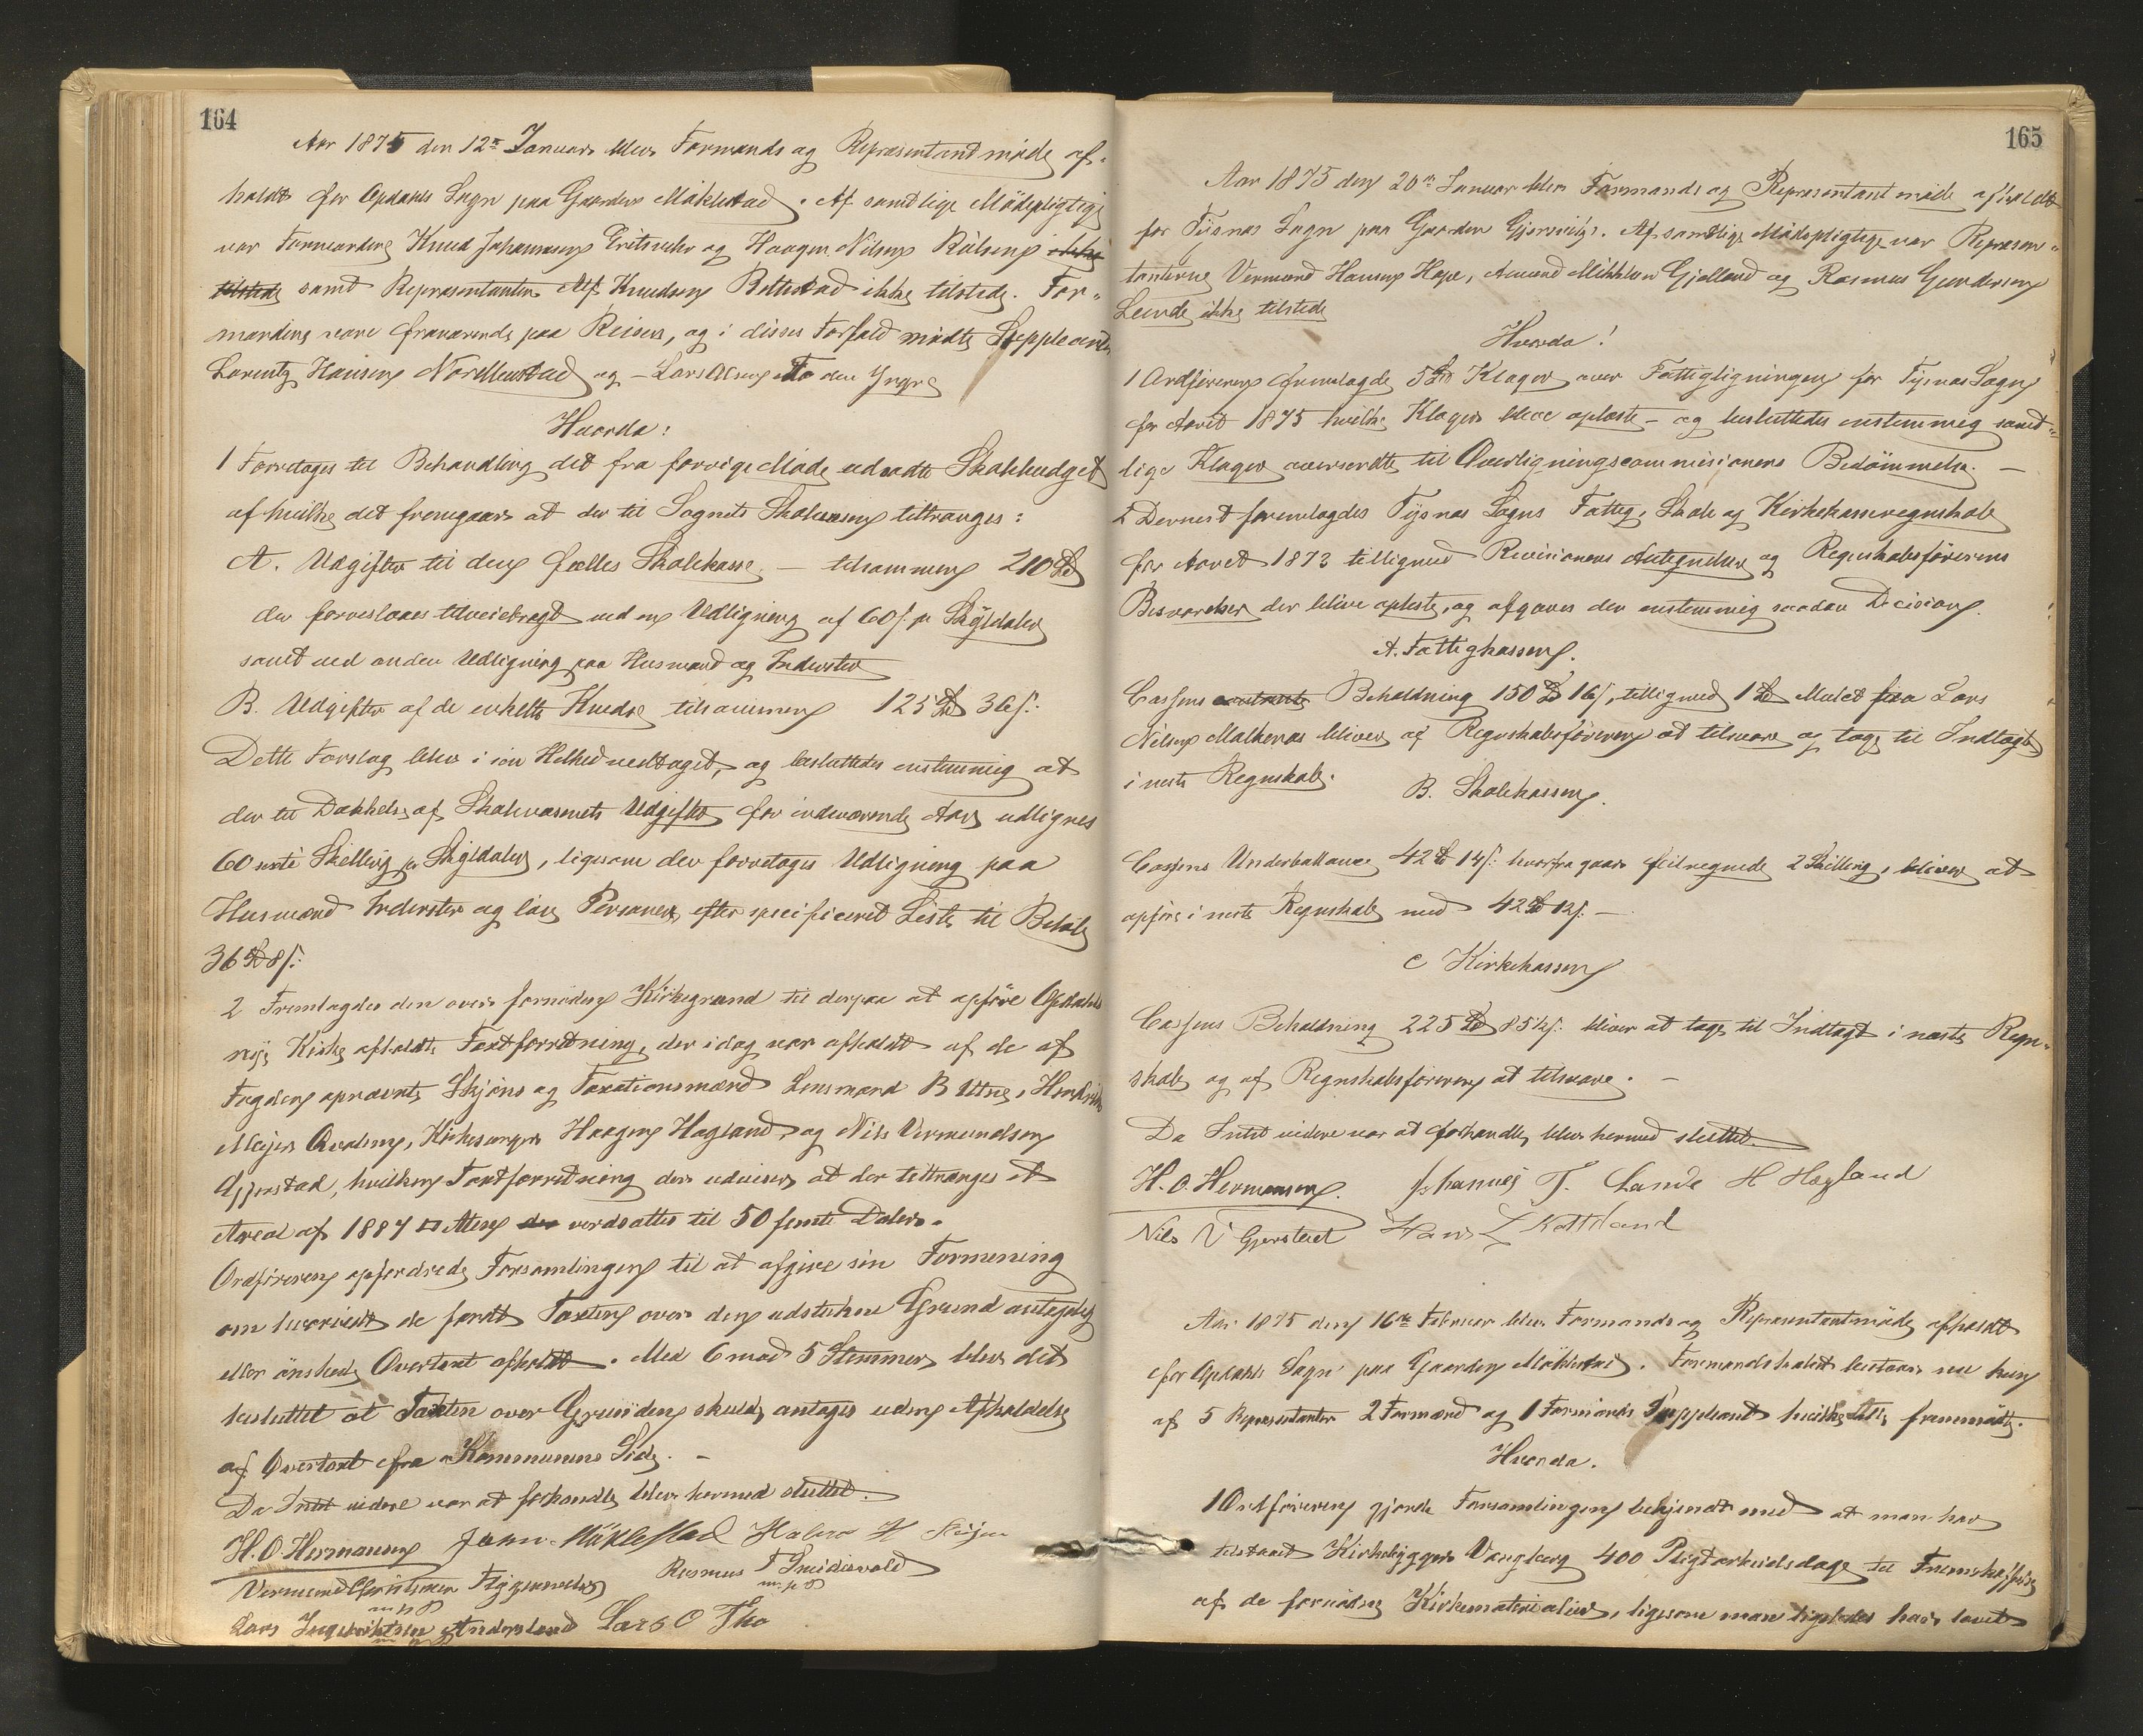 164
Aar 1875 den 12te Januar blev Formands og Repræsentantmøde af-
holdt for Opdahls Sogn paa Gaarden Møklestad. Af samtlige Mødepligtige
var Formændene Knud Johannesen og Haagen Nilsen ikke
tilstede samt Repræsentanten Knudsen ikke tilstede. For-
mændene vare fraværende paa Reiser, og i disses Forfald mødte Suppleanterne
Lorentz Hansen og Lars Olsen Tho den Yngre
Hvorda:
1 Forretoges til Behandling det fra forrige Møde udsatte Skolebudget
af hvilke det fremgaar at der til Sognets Skolevæsen tiltrænges:
A. Udgifter til den fælles Skolekasse, — tilsammen 210 Spd
der foreslaaes tilveiebragt ved en Udligning af 60 s. pr Skylddaler
samt ved anden Udligning paa Husmænd og Inderster
B. Udgifter af de enkelte Kredse tilsammen 125 Spd 36 s.
Dette Forslag blev i sin Helhed vedtaget, og besluttedes enstemmig at
der til Dækkelse af Skolevæsenets Udgifter for indeværende Aar udlignes
60 Skilling pr Skylddaler, ligesom der foretages Udligning paa
Husmænd Inderster og løse Personer, efter specificeret Liste til Beløb
36 Spd 8 s.
2 Fremlagdes den over fornøden Kirkegrund til derpaa at opføre Opdahls
nye Kirke afholdte Taxtforretning, der idag var afholdt af de af
Fogden opnævnte Skjøns og Taxationsmænd Lensmand B Uttne, Hendrik
Meyer Kirkesanger Haagen Hagland og Nils Vermundsen
hvilken Taxtforretning der udviser at der tiltrænges et
Areal af 1887 □ Alen der værdsattes til 50 femti Daler.
Ordføreren opfordrede Forsamlingen til at afgive sin Formening
om hvorvidt de fandt Taxten over den udstukne Grund antagelig
eller ønskede Overtaxt afholdt. Med 6 mod 5 Stemmer blev det
besluttet at Taxten over Grunden skulde antages uden Afholdelse
af Overtaxt fra Kommunens Side. —
Da Intet videre var at forhandle blev hermed sluttet.
H. O. Hermansen John Møklestad
Vermund Christensen Rasmus T
m. p. P m. p. P
Lars Ingebrigtsen Andersland Lars O Tho
165
Aar 1875 den 20de Januar blev Formands og Repræsentantmøde afholdt
for Tysnæs Sogn paa Gaarden Gjersvik. Af samtlige Mødepligtige var Repræsen-
tanterne Vermund Hansen Hope, Amund Mikkelsen Gjelland og Rasmus Gundersen
Lunde ikke tilstede
Hvorda!
1 Ordføreren fremlagde 5 Klager over Fattigligningen for Tysnæs Sogn
for Aaret 1875 hvilke Klager bleve oplæste – og besluttedes enstemmig samt-
lige Klager oversendte til Overligningscommisionens Bedømmelse. —
2 Dernæst fremlagdes Tysnæs Sogns Fattig, Skole og Kirkekasseregnskab
for Aaret 1873 tilligemed Revisionens Antegnelser og Regnskabsførerens
Besvarelser der bleve oplæste, og afgaves der enstemmig saadan Decision.
A. Fattigkassen.
Cassens Beholdning 150 Spd 16 s, tilligemed 1 Spd Mulct fra Lars
Nilsen Malkenæs bliver af Regnskabsføreren at tilsvare og tage til Indtægt
i næste Regnskab.
B. Skolekassen.
Cassens Underballance 42 Spd 14 s. hvorfra gaar feilregnede 2 Skilling, bliver at
opføre i næste Regnskab med 42 Spd 12 s. —
C Kirkekassen
Cassens Beholdning 225 Spd 85½ s. bliver at tage til Indtægt i næste Regn-
skab og af Regnskabsføreren at tilsvare. —
Da Intet videre var at forhandle, blev hermed sluttet.
H. O. Hermansen. Johannes T. Lande H Hagland
Nils V Gjerstad Hans L Kattland
Aar 1875 den 16de Februar blev Formands og Repræsentantmøde afholdt
for Opdahls Sogn paa Gaarden Møklestad. Formandskabet bestaar nu kun
af 5 Repræsentanter 2 Formænd og 1 Formands Suppleant hvilke alle fremmødte.
Hvorda.
1 Ordføreren gjorde Forsamlingen bekjendt med at man har
tilstaaet Kirkebygger Vangberg 400 Pligtarbeidsdage til Fremskaffelse
af de fornødne Kirkematerialier, ligesom man ligeledes har lovet